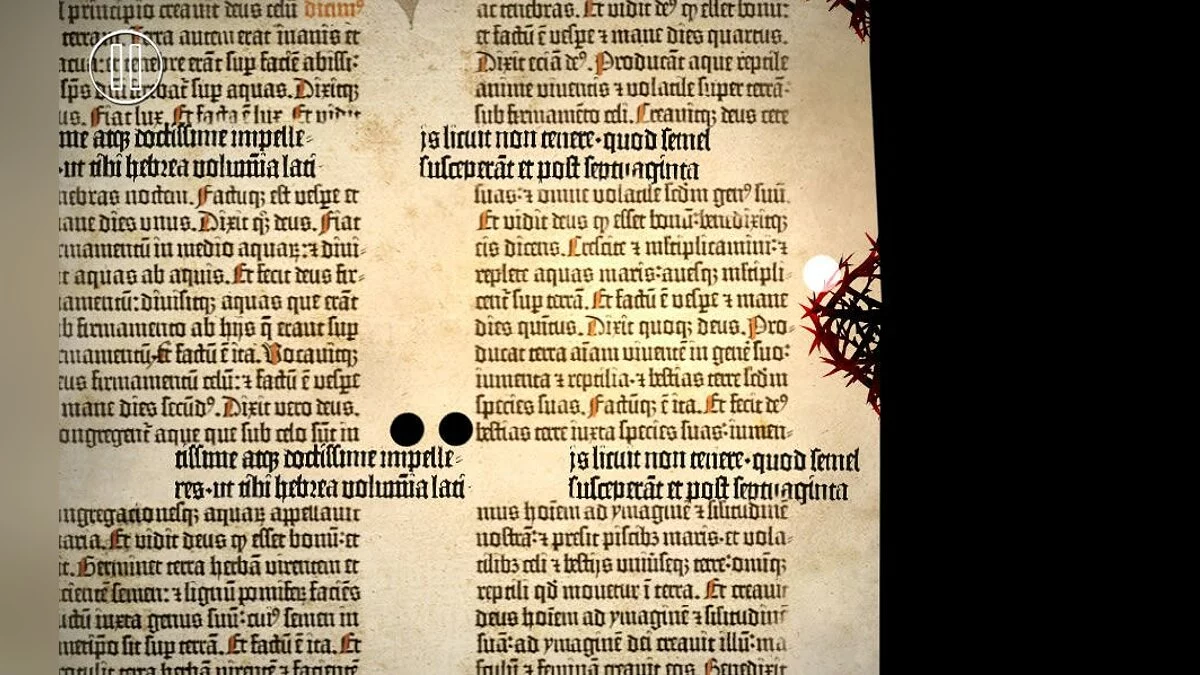 principio creauit deus celū
terram. Terra autem erat inanis et
ꝛ tenebre erāt sup faciē abissi:
sp̄s ferebat sup aquas. Dixitqꝫ
us. Fiat lux. Et facta ē lux. Et vidit
me atqꝫ doctissime impelle-
ut tibi hebrea volumīa lati
nebras noctem. Factuqꝫ est vespe et
mane dies vnus. Dixit qꝫ deus. Fiat
rmamentū in medio aquaꝝ: ꝛ diui-
t aquas ab aquis. Et fecit deus fir-
amentū: diuisitqꝫ aquas que erāt
b firmamento ab hijs q̄ erant sup
mamentū. Et factū ē ita. Vocauitqꝫ
eus firmamentū celū: ꝛ factū ē vespe
mane dies secūdꝰ. Dixit vero deus.
ongregent̄ aque que sub celo sūt in
tissime atqꝫ doctissime impelle-
res·ut tibi hebrea volumīa lati
ongregationesqꝫ aquaꝝ appellauit
maria. Et vidit deus ꝙ esset bonū: et
it. Germinet terra herbā virentem et
cientē semen: ꝛ lignū pomiferꝫ faciēs
uctū iuxta genus suū: cuiꝰ semen in
metip̄o sit sup terrā. Et factū ē ita. Et
protulit terra herbā virentē ꝛ facientē
ac tenebras. Et vidit deꝰ ꝙ esset bonū:
et factū ē vespe ꝛ mane dies quartus.
Dixit eciā deꝰ. Producāt aque reptile
anime viuentis ꝛ volatile super terrā:
sub firmamēto celi. Creauitqꝫ deus cete
js licuit non tenere·quod semel
susceperāt et post septuaginta
suas: ꝛ omne volatile sc̄dm genꝰ suū.
Et vidit deus ꝙ esset bonū: benedixitqꝫ
eis dicens. Crescite ꝛ ml̄tiplicamini: ꝛ
replete aquas maris: auesqꝫ ml̄tipli-
cent̄ sup terrā. Et factū ē vespe ꝛ mane
dies quītus. Dixit quoqꝫ deus. Pro-
ducat terra aīam viuentē in genē suo:
iumenta ꝛ reptilia·ꝛ bestias terre sc̄dm
species suas. Factūqꝫ ē ita. Et fecit deꝰ
bestias terre iuxta species suas: iumen-
js licuit non tenere·quod semel
susceperāt et post septuaginta
mus hoīem ad ymaginē ꝛ sil̄itudinē
nostrā: ꝛ presit piscibꝫ maris·et vola-
tilibꝫ celi ꝛ bestijs vniūseqꝫ terre: omīqꝫ
reptili qd̄ mouetur ī terra. Et creauit
deus hoīem ad ymaginē ꝛ sil̄itudinē
suā: ad ymaginē dei creauit illū: ma-
sculū ꝛ feminā creauit eos. Benedixit